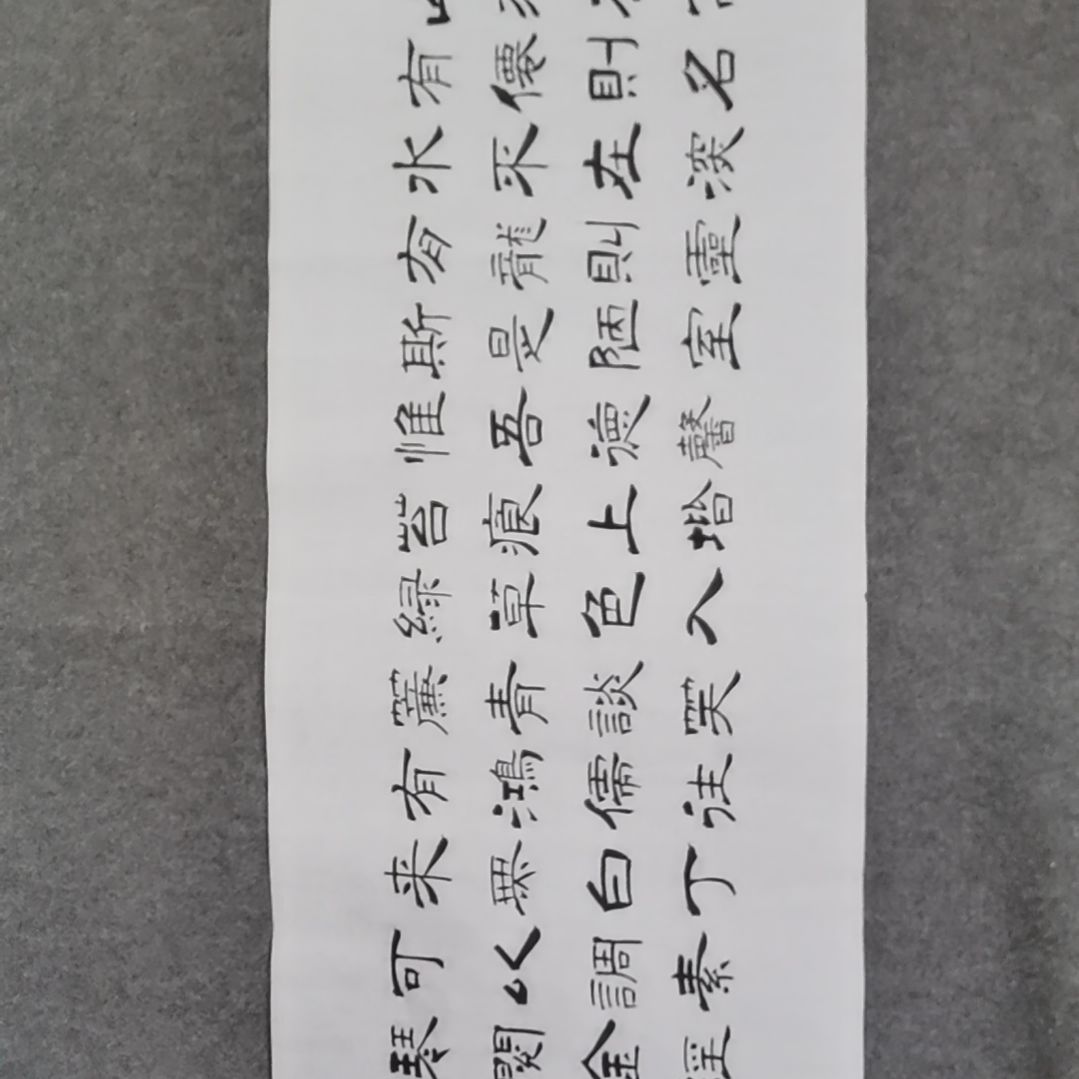 有僊則名
水不在深
有龍則靈
斯是陋室
惟吾德馨
苔痕上堦
綠草色入
簾青談笑
有鴻儒往
来無白丁
可以調素
琴閱金經